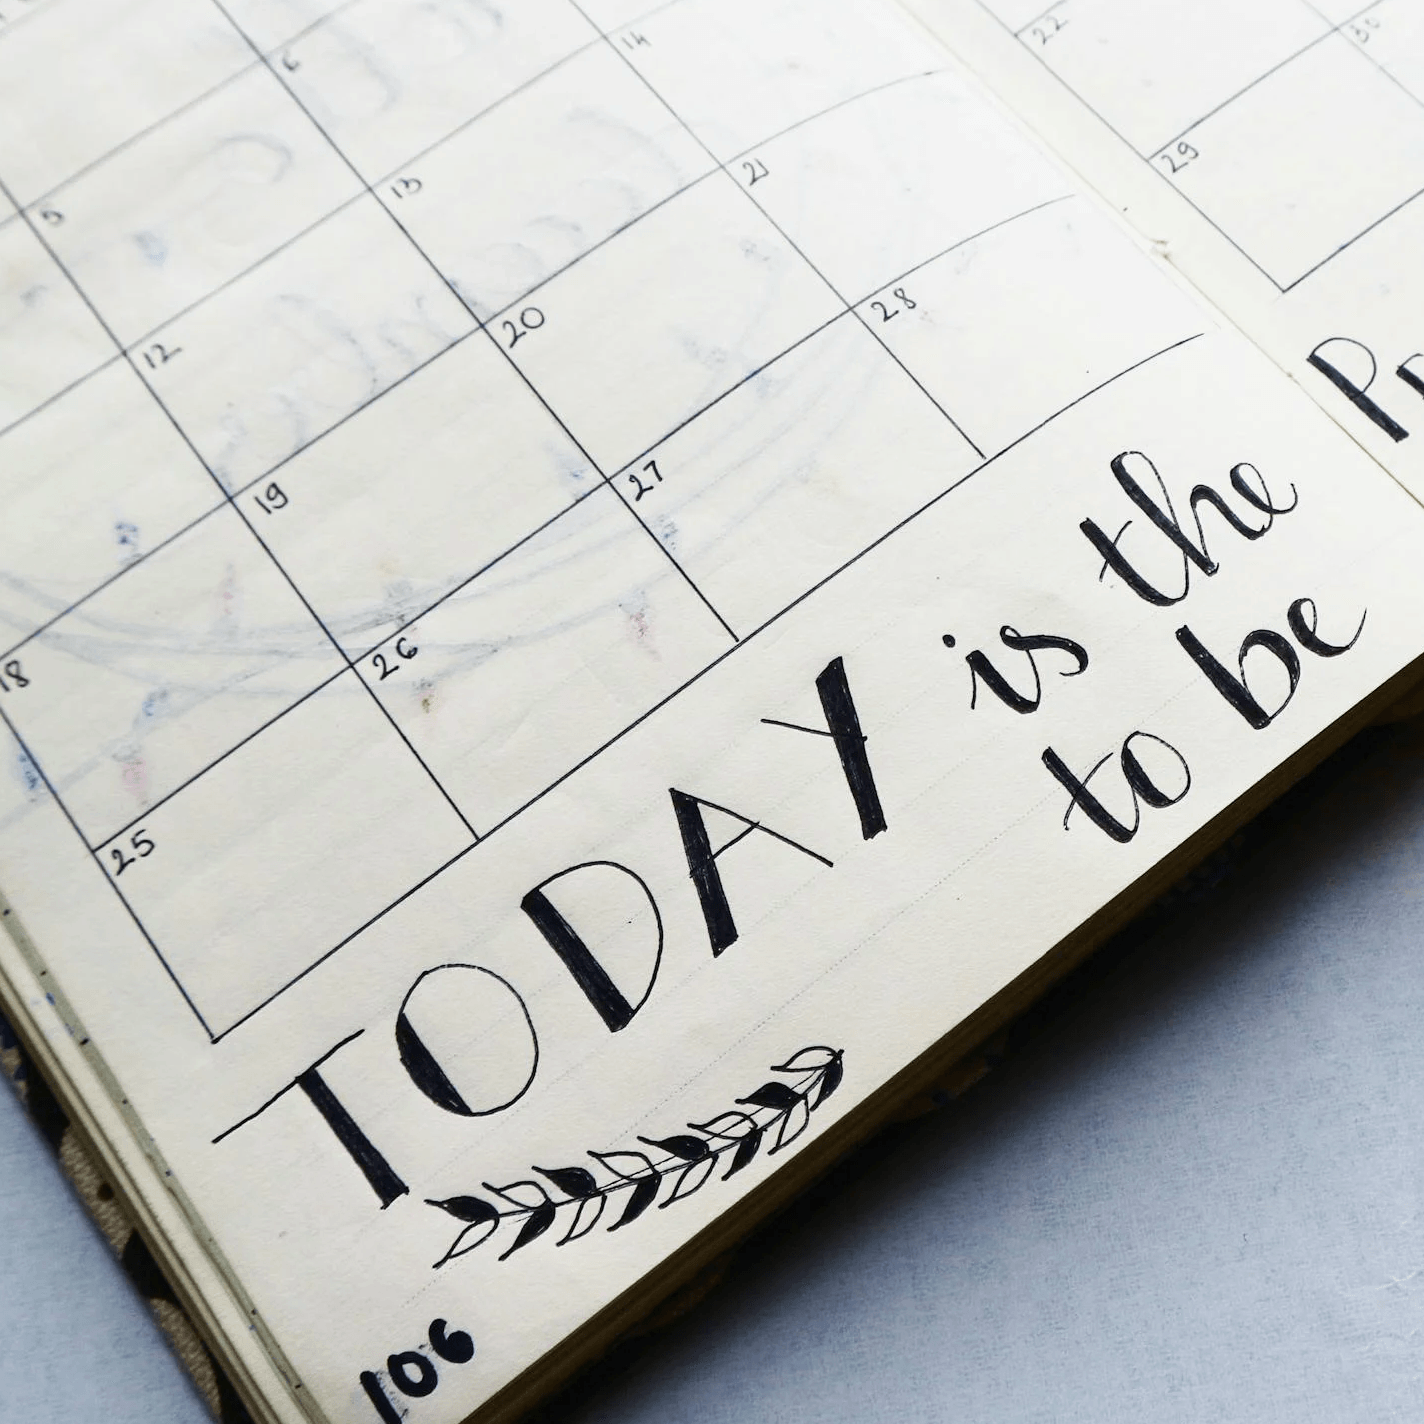 6 14 22 30
5 13 21 29
12 20 28
19 27
18 26
25
TODAY is the
to be
106